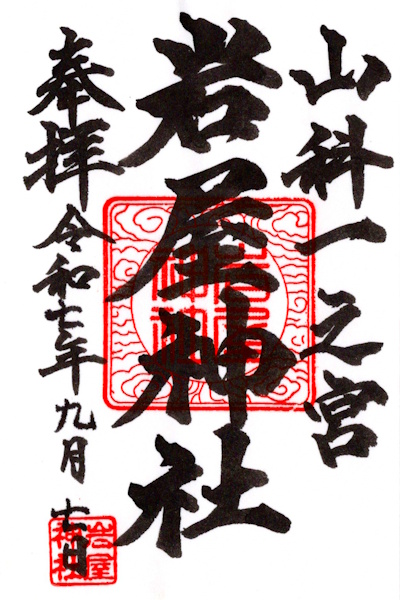 山科一之宮
岩屋神社
奉拝
令和七年九月
岩屋
神社